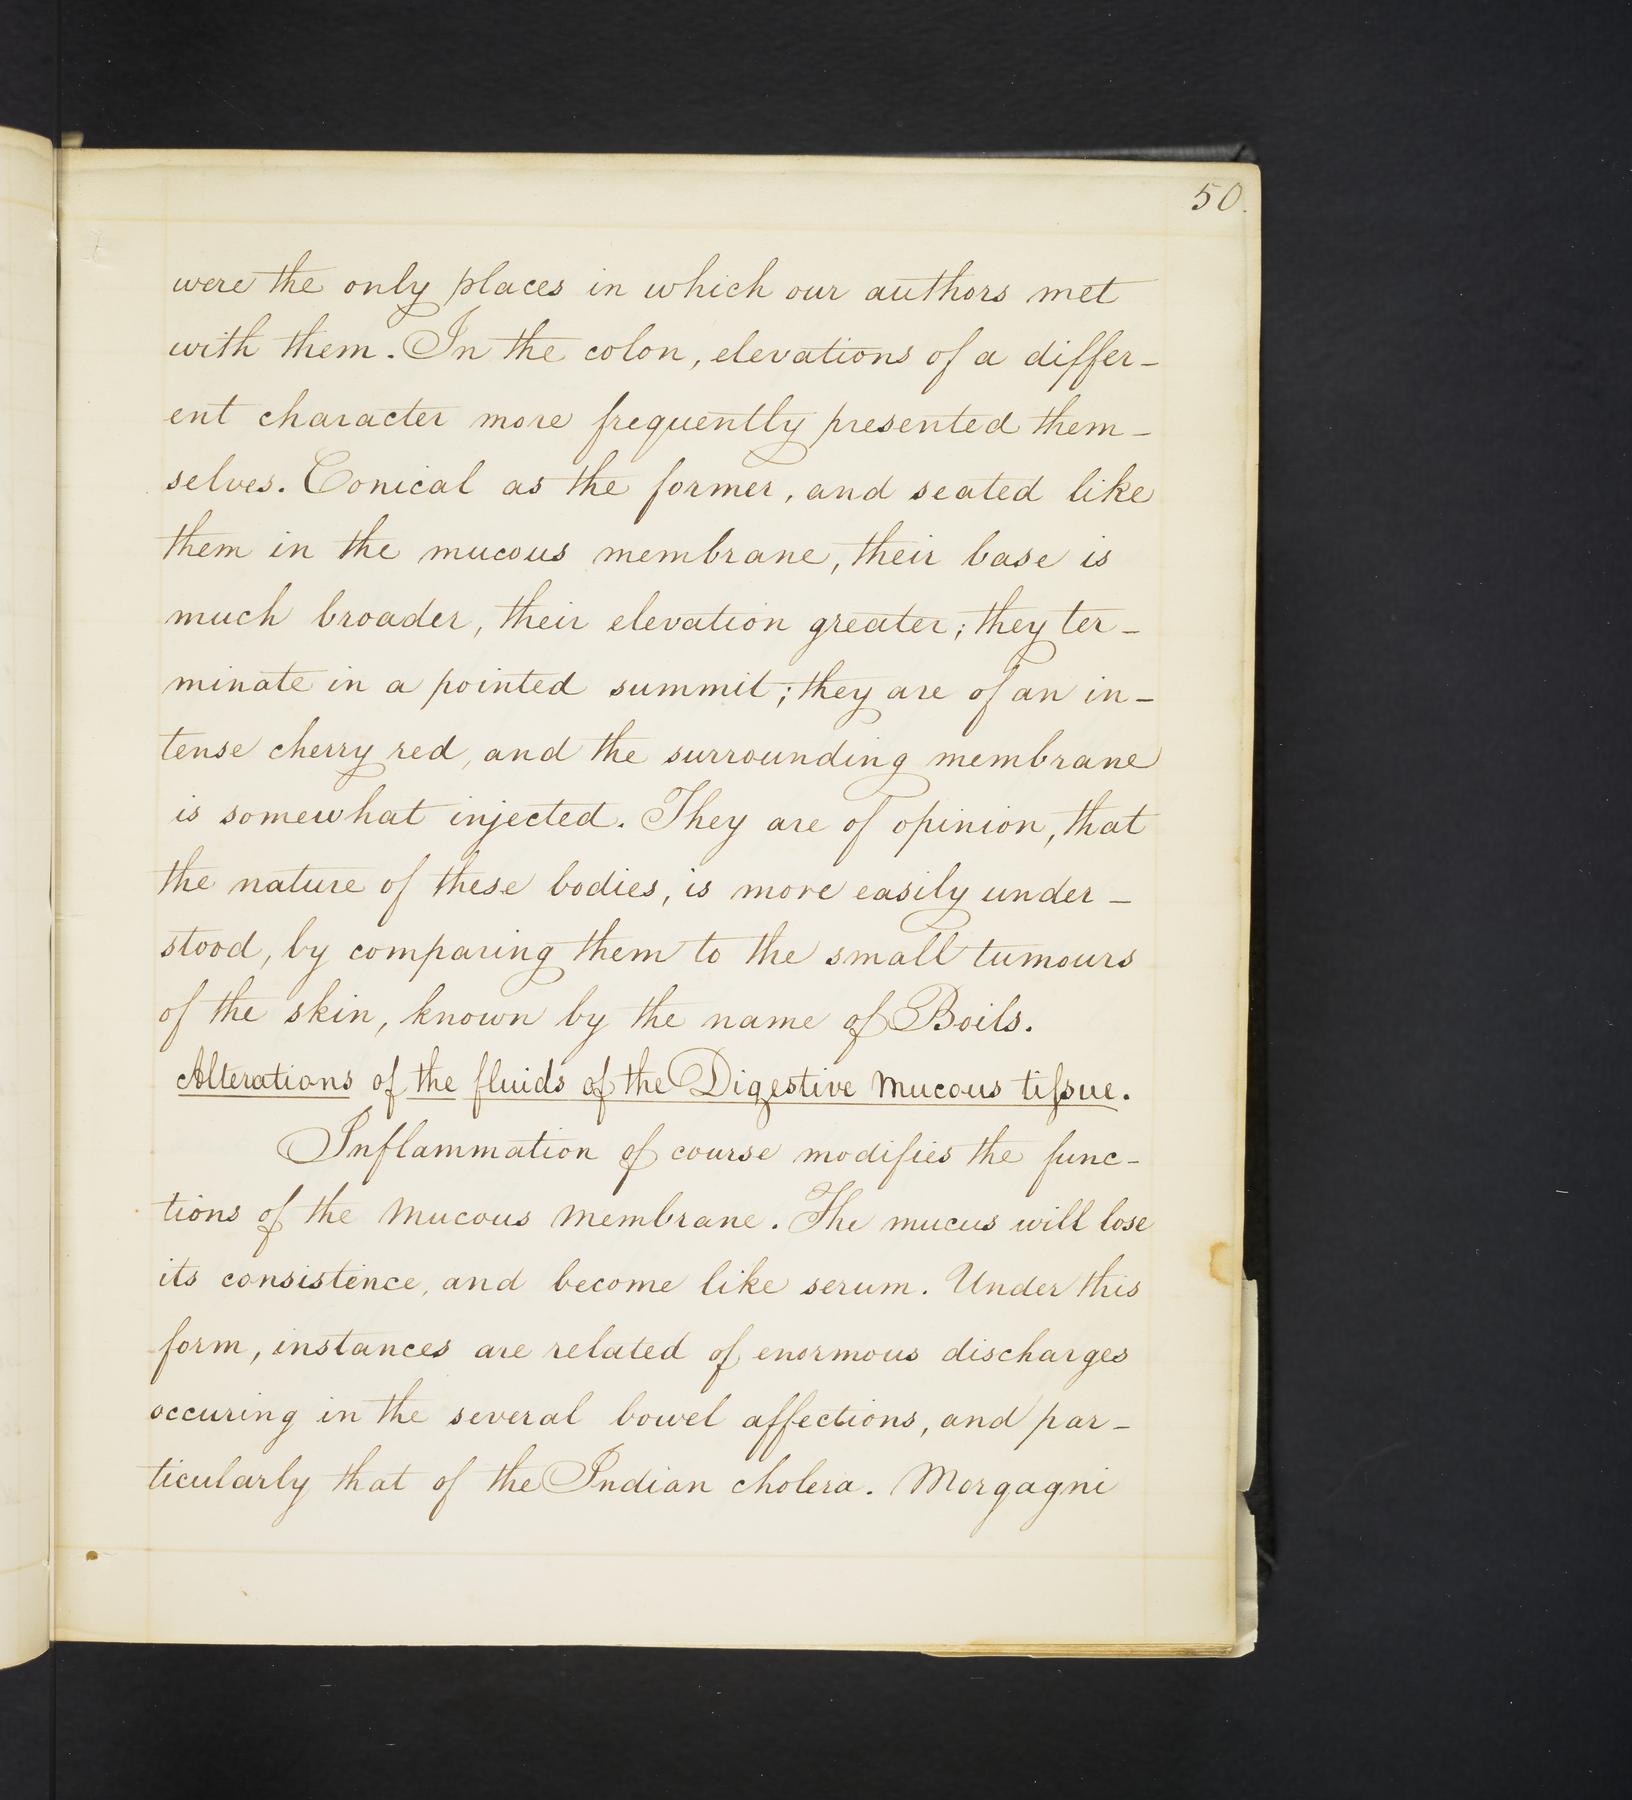 50.
were the only places in which our authors met
with them. In the colon, elevations of a differ-
ent character more frequently presented them-
selves. Conical as the former, and seated like
them in the mucous membrane, their base is
much broader, their elevation greater; they ter-
minate in a pointed summit; they are of an in-
tense cherry red, and the surrounding membrane
is somewhat injected. They are of opinion, that
the nature of these bodies, is more easily under-
stood, by comparing them to the small tumours
of the skin, known by the name of Boils.
Alterations of the fluids of the Digestive Mucous tiſsue.
Inflammation of course modifies the func-
tions of the Mucous Membrane. The mucus will lose
its consistence, and become like serum. Under this
form, instances are related of enormous discharges
occuring in the several bowel affections, and par-
ticularly that of the Indian cholera. Morgagni